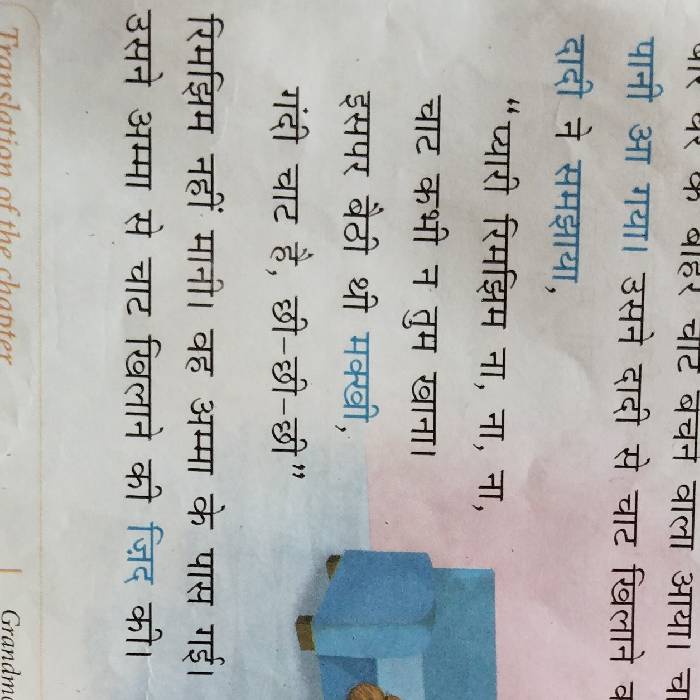 के बाहर चाट बेचने वाला आया।
पानी आ गया। उसने दादी से चाट खिलाने
दादी ने समझाया,
“प्यारी रिमझिम ना, ना, ना,
चाट कभी न तुम खाना।
इसपर बैठी थी मक्खी,
गंदी चाट है, छी-छी-छी”
रिमझिम नहीं मानी। वह अम्मा के पास गई।
उसने अम्मा से चाट खिलाने की ज़िद की।
Translation of the chapter